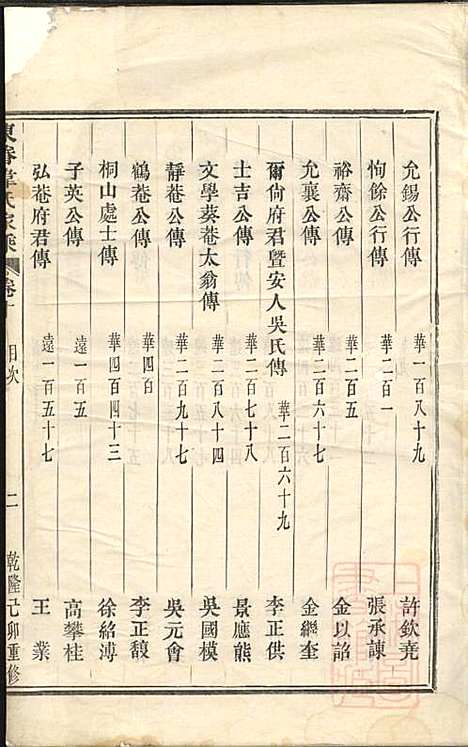 允錫公行傳 華一百八十九 許欽堯
恂餘公行傳 華二百一 張承諫
裕齋公傳 華二百五 金以諂
允襄公傳 華二百六十七 金繼奎
爾尙府君暨安人吳氏傳 華二百六十九 李正供
士吉公傳 華二百七十八 景應熊
文學葵菴太翁傳 華二百八十四 吳國模
靜菴公傳 華二百九十七 吳元會
鶴菴公傳 華四百 李正馥
桐山處士傳 華四百四十三 徐紹溥
子英公傳 遠一百五 高攀桂
弘菴府君傳 遠一百五十七 王業
東眷韋氏家乘 卷十 目次 二 乾隆己卯重修